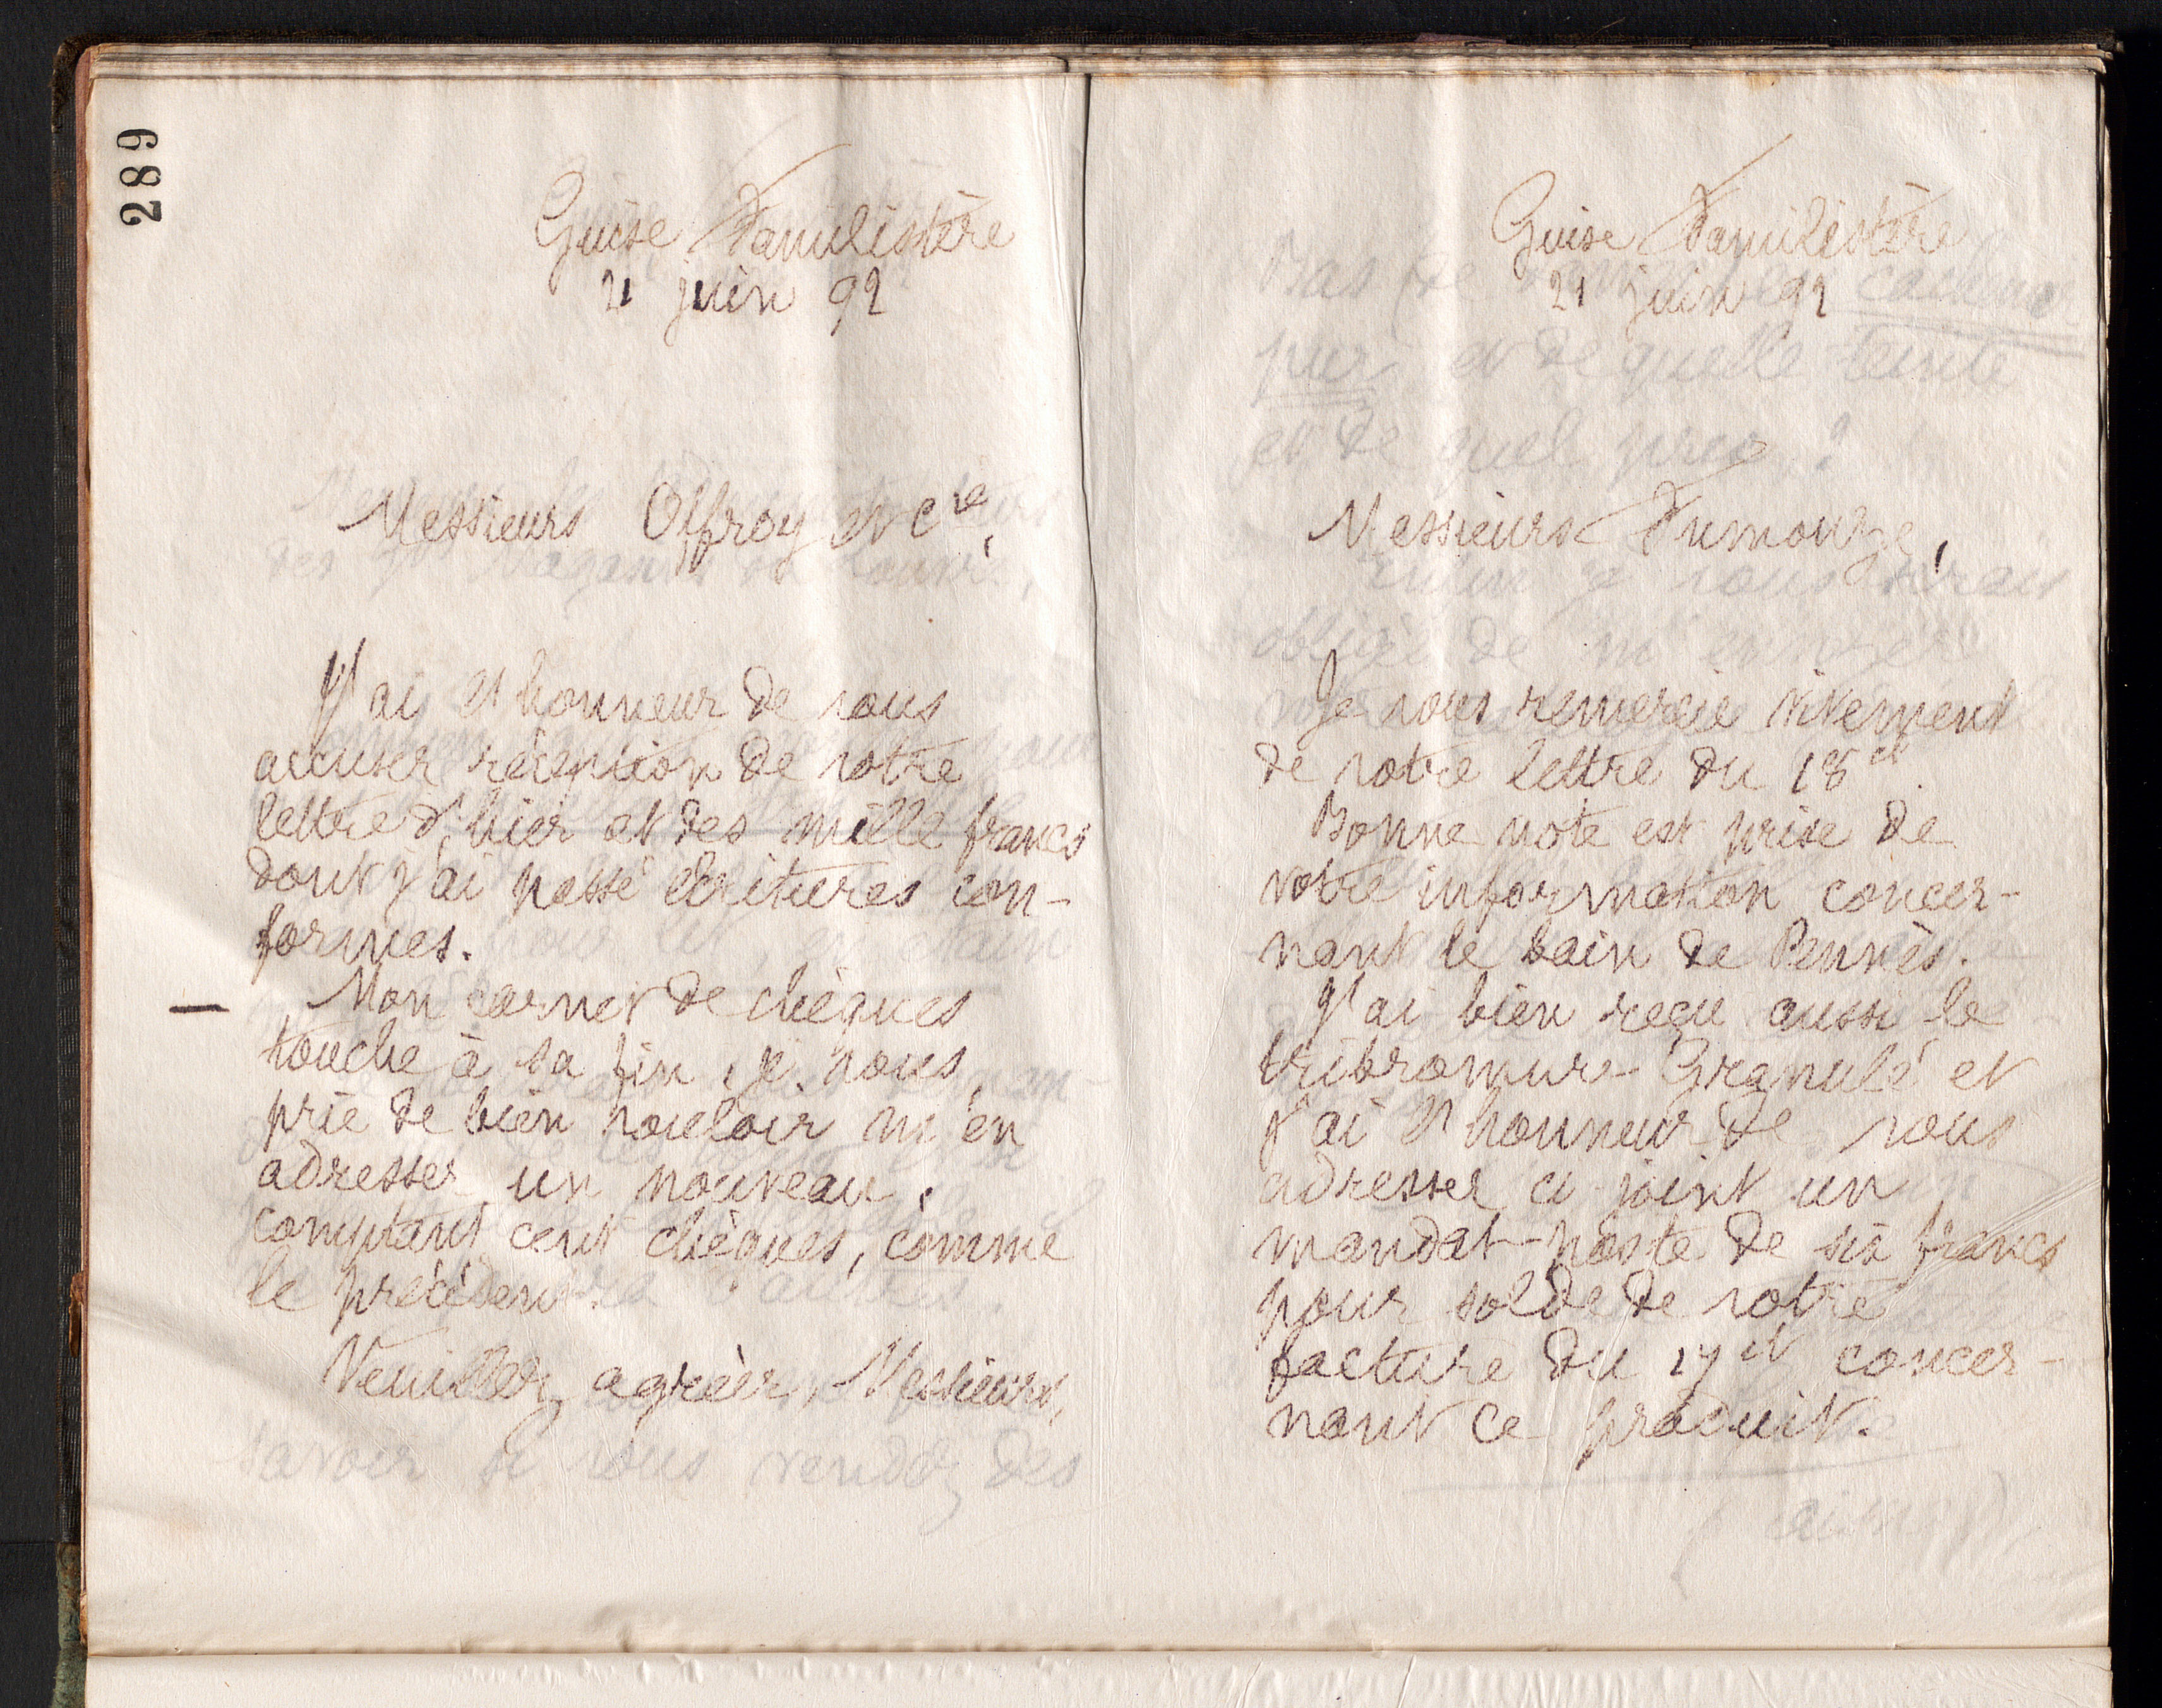 289
Guise Familistère
21 juin 92
Messieurs Offroy et Cie,
J'ai l'honneur de vous
accuser réception de votre
lettre d'hier et des mille francs
dont j'ai passé écritures con-
formes.
Mon carnet de chèques
touche à sa fin, je vous
prie de bien vouloir m'en
adresser un nouveau,
comptant cent chèques, comme
le précédent.
Veuillez agréer, Messieurs,
savoir si vous vendez des
Guise Familistère
21 juin 92
Bas de cachemire
pur et de quelle teinte
et de quel prix ?
Messieurs Fumouze,
Enfin je vous serais
obligée de m'envoyer
Je vous remercie vivement
de votre lettre du 18 ct.
Bonne note est prise de
votre information concer-
nant le bain de Pennès.
J'ai bien reçu aussi le
tribromure Granulé et
j'ai l'honneur de vous
adresser ci-joint un
mandat-poste de six francs
pour solde de votre
facture du 17 ct concer-
nant ce produit.